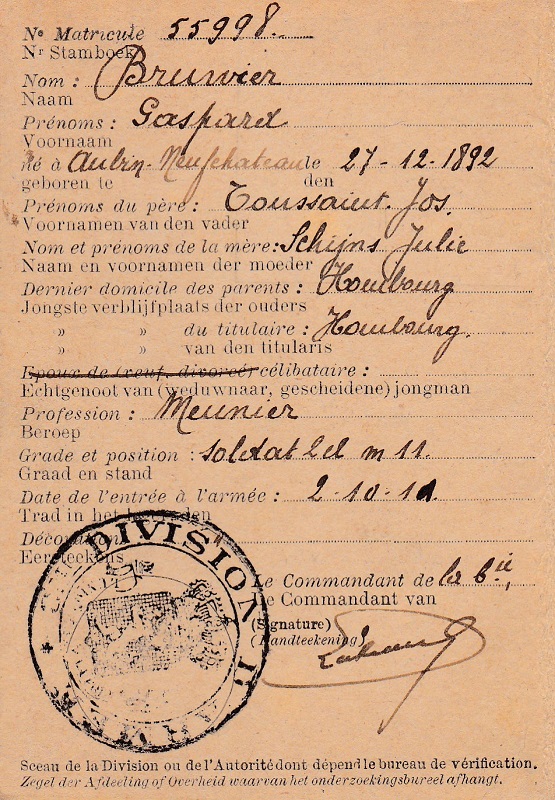 No Matricule 55998.
Nr Stamboek
Nom : Bruwier
Naam
Prénoms : Gaspard
Voornaam
né à Aubin-Neufchateau le 27-12-1892
geboren te den
Prénoms du père : Toussaint. Jos.
Voornamen van den vader
Nom et prénoms de la mère : Schijns Julie
Naam en voornamen der moeder
Dernier domicile des parents : Hombourg
Jongste verblijfplaats der ouders
» » du titulaire : Hombourg.
» » van den titularis
Epoux de (veuf, divorcé) célibataire :
Echtgenoot van (weduwnaar, gescheidene) jongman
Profession : Meunier
Beroep
Grade et position : soldat 2cl m 11.
Graad en stand
Date de l'entrée à l'armée : 2-10-11
Trad in het
Eereteekens
DIVISION D'ARMEE
Le Commandant de la bie
De Commandant van
(Signature)
(Handteekening)
Sceau de la Division ou de l'Autorité dont dépend le bureau de vérification.
Zegel der Afdeeling of Overheid waarvan het onderzoekingsbureel afhangt.